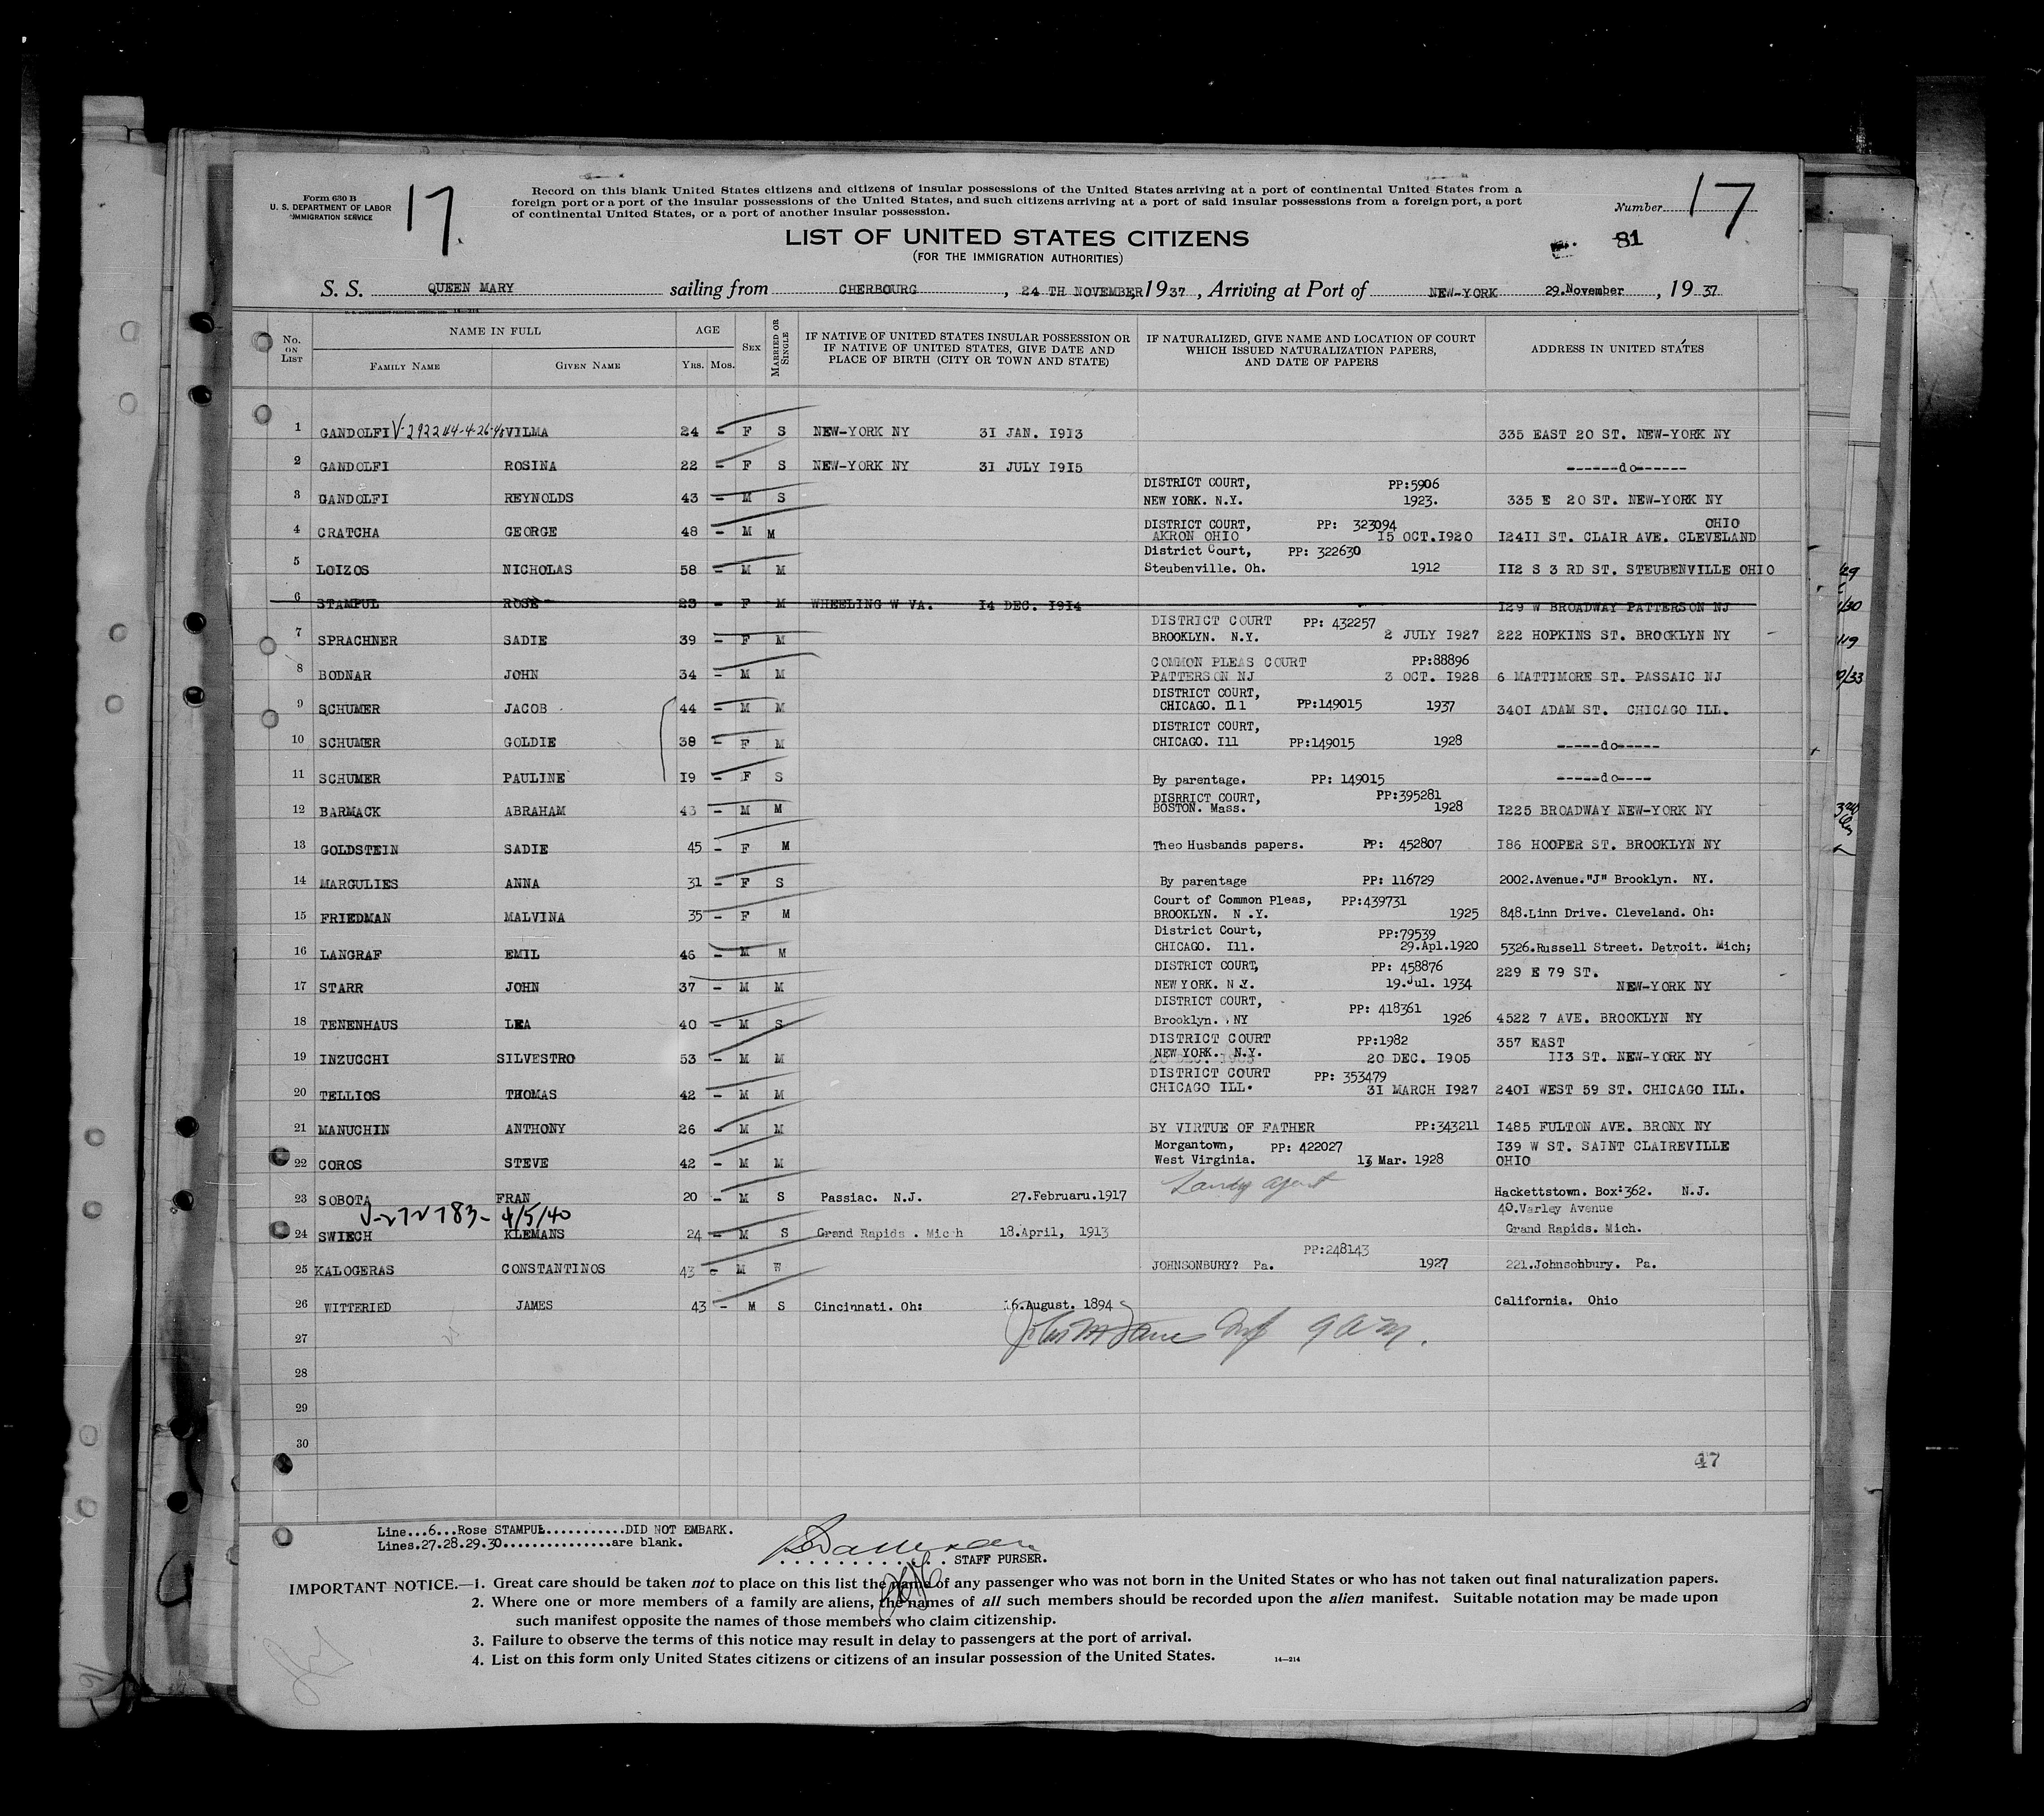 Form 630 B
U. S. DEPARTMENT OF LABOR
IMMIGRATION SERVICE
17
Record on this blank United States citizens and citizens of insular possessions of the United States arriving at a port of continental United States from a
foreign port or a port of the insular possessions of the United States, and such citizens arriving at a port of said insular possessions from a foreign port, a port
of continental United States, or a port of another insular possession.
Number 17
LIST OF UNITED STATES CITIZENS
81
(FOR THE IMMIGRATION AUTHORITIES)
S. S. QUEEN MARY sailing from CHERBOURG, 24 TH NOVEMBER, 1937, Arriving at Port of NEW-YORK 29.November, 1937
No. ON LIST NAME IN FULL AGE SEX MARRIED OR SINGLE IF NATIVE OF UNITED STATES INSULAR POSSESSION OR IF NATIVE OF UNITED STATES, GIVE DATE AND PLACE OF BIRTH (CITY OR TOWN AND STATE) IF NATURALIZED, GIVE NAME AND LOCATION OF COURT WHICH ISSUED NATURALIZATION PAPERS, AND DATE OF PAPERS ADDRESS IN UNITED STATES
FAMILY NAME GIVEN NAME YRS. MOS.
1 GANDOLFI V-292244-4-26-40 VILMA 24 - F S NEW-YORK NY 31 JAN. 1913 335 EAST 20 ST. NEW-YORK NY
2 GANDOLFI ROSINA 22 - F S NEW-YORK NY 31 JULY 1915 ------do------
3 GANDOLFI REYNOLDS 43 - M S DISTRICT COURT, PP:5906 NEW YORK. N.Y. 1923. 335 E 20 ST. NEW-YORK NY
4 CRATCHA GEORGE 48 - M M DISTRICT COURT, PP: 323094 AKRON OHIO 15 OCT.1920 12411 ST. CLAIR AVE. CLEVELAND OHIO
5 LOIZOS NICHOLAS 58 - M M District Court, PP: 322630 Steubenville. Oh. 1912 112 S 3 RD ST. STEUBENVILLE OHIO
6 STAMPUL ROSE 23 - F M WHEELING W VA. 14 DEC. 1914 129 W BROADWAY PATTERSON NJ
7 SPRACHNER SADIE 39 - F M DISTRICT COURT PP: 432257 BROOKLYN. N.Y. 2 JULY 1927 222 HOPKINS ST. BROOKLYN NY
8 BODNAR JOHN 34 - M M COMMON PLEAS COURT PP:88896 PATTERSON NJ 3 OCT. 1928 6 MATTIMORE ST. PASSAIC NJ
9 SCHUMER JACOB 44 - M M DISTRICT COURT, CHICAGO. Ill PP:149015 1937 3401 ADAM ST. CHICAGO ILL.
10 SCHUMER GOLDIE 38 - F M DISTRICT COURT, CHICAGO. Ill PP:149015 1928 -----do-----
11 SCHUMER PAULINE 19 - F S By parentage. PP: 149015 -----do----
12 BARMACK ABRAHAM 43 - M M DISRRICT COURT, PP:395281 BOSTON. Mass. 1928 1225 BROADWAY NEW-YORK NY
13 GOLDSTEIN SADIE 45 - F M Theo Husbands papers. PP: 452807 186 HOOPER ST. BROOKLYN NY
14 MARGULIES ANNA 31 - F S By parentage PP: 116729 2002.Avenue."J" Brooklyn. NY.
15 FRIEDMAN MALVINA 35 - F M Court of Common Pleas, PP:439731 BROOKLYN. N .Y. 1925 848.Linn Drive. Cleveland. Oh:
16 LANGRAF EMIL 46 - M M District Court, PP:79539 CHICAGO. Ill. 29.Apl.1920 5326.Russell Street. Detroit. Mich;
17 STARR JOHN 37 - M M DISTRICT COURT, PP: 458876 NEW YORK. N.Y. 19.Jul. 1934 229 E 79 ST. NEW-YORK NY
18 TENENHAUS LEA 40 - M S DISTRICT COURT, PP: 418361 Brooklyn. NY 1926 4522 7 AVE. BROOKLYN NY
19 INZUCCHI SILVESTRO 53 - M M DISTRICT COURT PP:1982 NEW YORK. N.Y. 20 DEC. 1905 357 EAST 113 ST. NEW-YORK NY
20 TELLIOS THOMAS 42 - M M DISTRICT COURT PP: 353479 CHICAGO ILL. 31 MARCH 1927 2401 WEST 59 ST. CHICAGO ILL.
21 MANUCHIN ANTHONY 26 - M M BY VIRTUE OF FATHER PP:343211 1485 FULTON AVE. BRONX NY
22 COROS STEVE 42 - M M Morgantown, PP: 422027 West Virginia. 13 Mar. 1928 139 W ST. SAINT CLAIREVILLE OHIO
23 SOBOTA FRAN 20 - M S Passiac. N.J. 27.Februaru.1917 Hackettstown. Box:362. N.J.
V-272783- 4/5/40
24 SWIECH KLEMANS 24 - M S Grand Rapids . Mich 18.April, 1913 40.Varley Avenue Grand Rapids. Mich.
25 KALOGERAS CONSTANTINOS 43 - M W PP:248143 JOHNSONBURY? Pa. 1927 221.Johnsonbury. Pa.
26 WITTERIED JAMES 43 - M S Cincinnati. Oh: 16.August. 1894 California. Ohio
27
28
29
30
47
Line...6...Rose STAMPUL...........DID NOT EMBARK.
Lines.27.28.29.30................are blank.
STAFF PURSER.
IMPORTANT NOTICE.—1. Great care should be taken not to place on this list the name of any passenger who was not born in the United States or who has not taken out final naturalization papers.
2. Where one or more members of a family are aliens, the names of all such members should be recorded upon the alien manifest. Suitable notation may be made upon
such manifest opposite the names of those members who claim citizenship.
3. Failure to observe the terms of this notice may result in delay to passengers at the port of arrival.
4. List on this form only United States citizens or citizens of an insular possession of the United States.
14—214